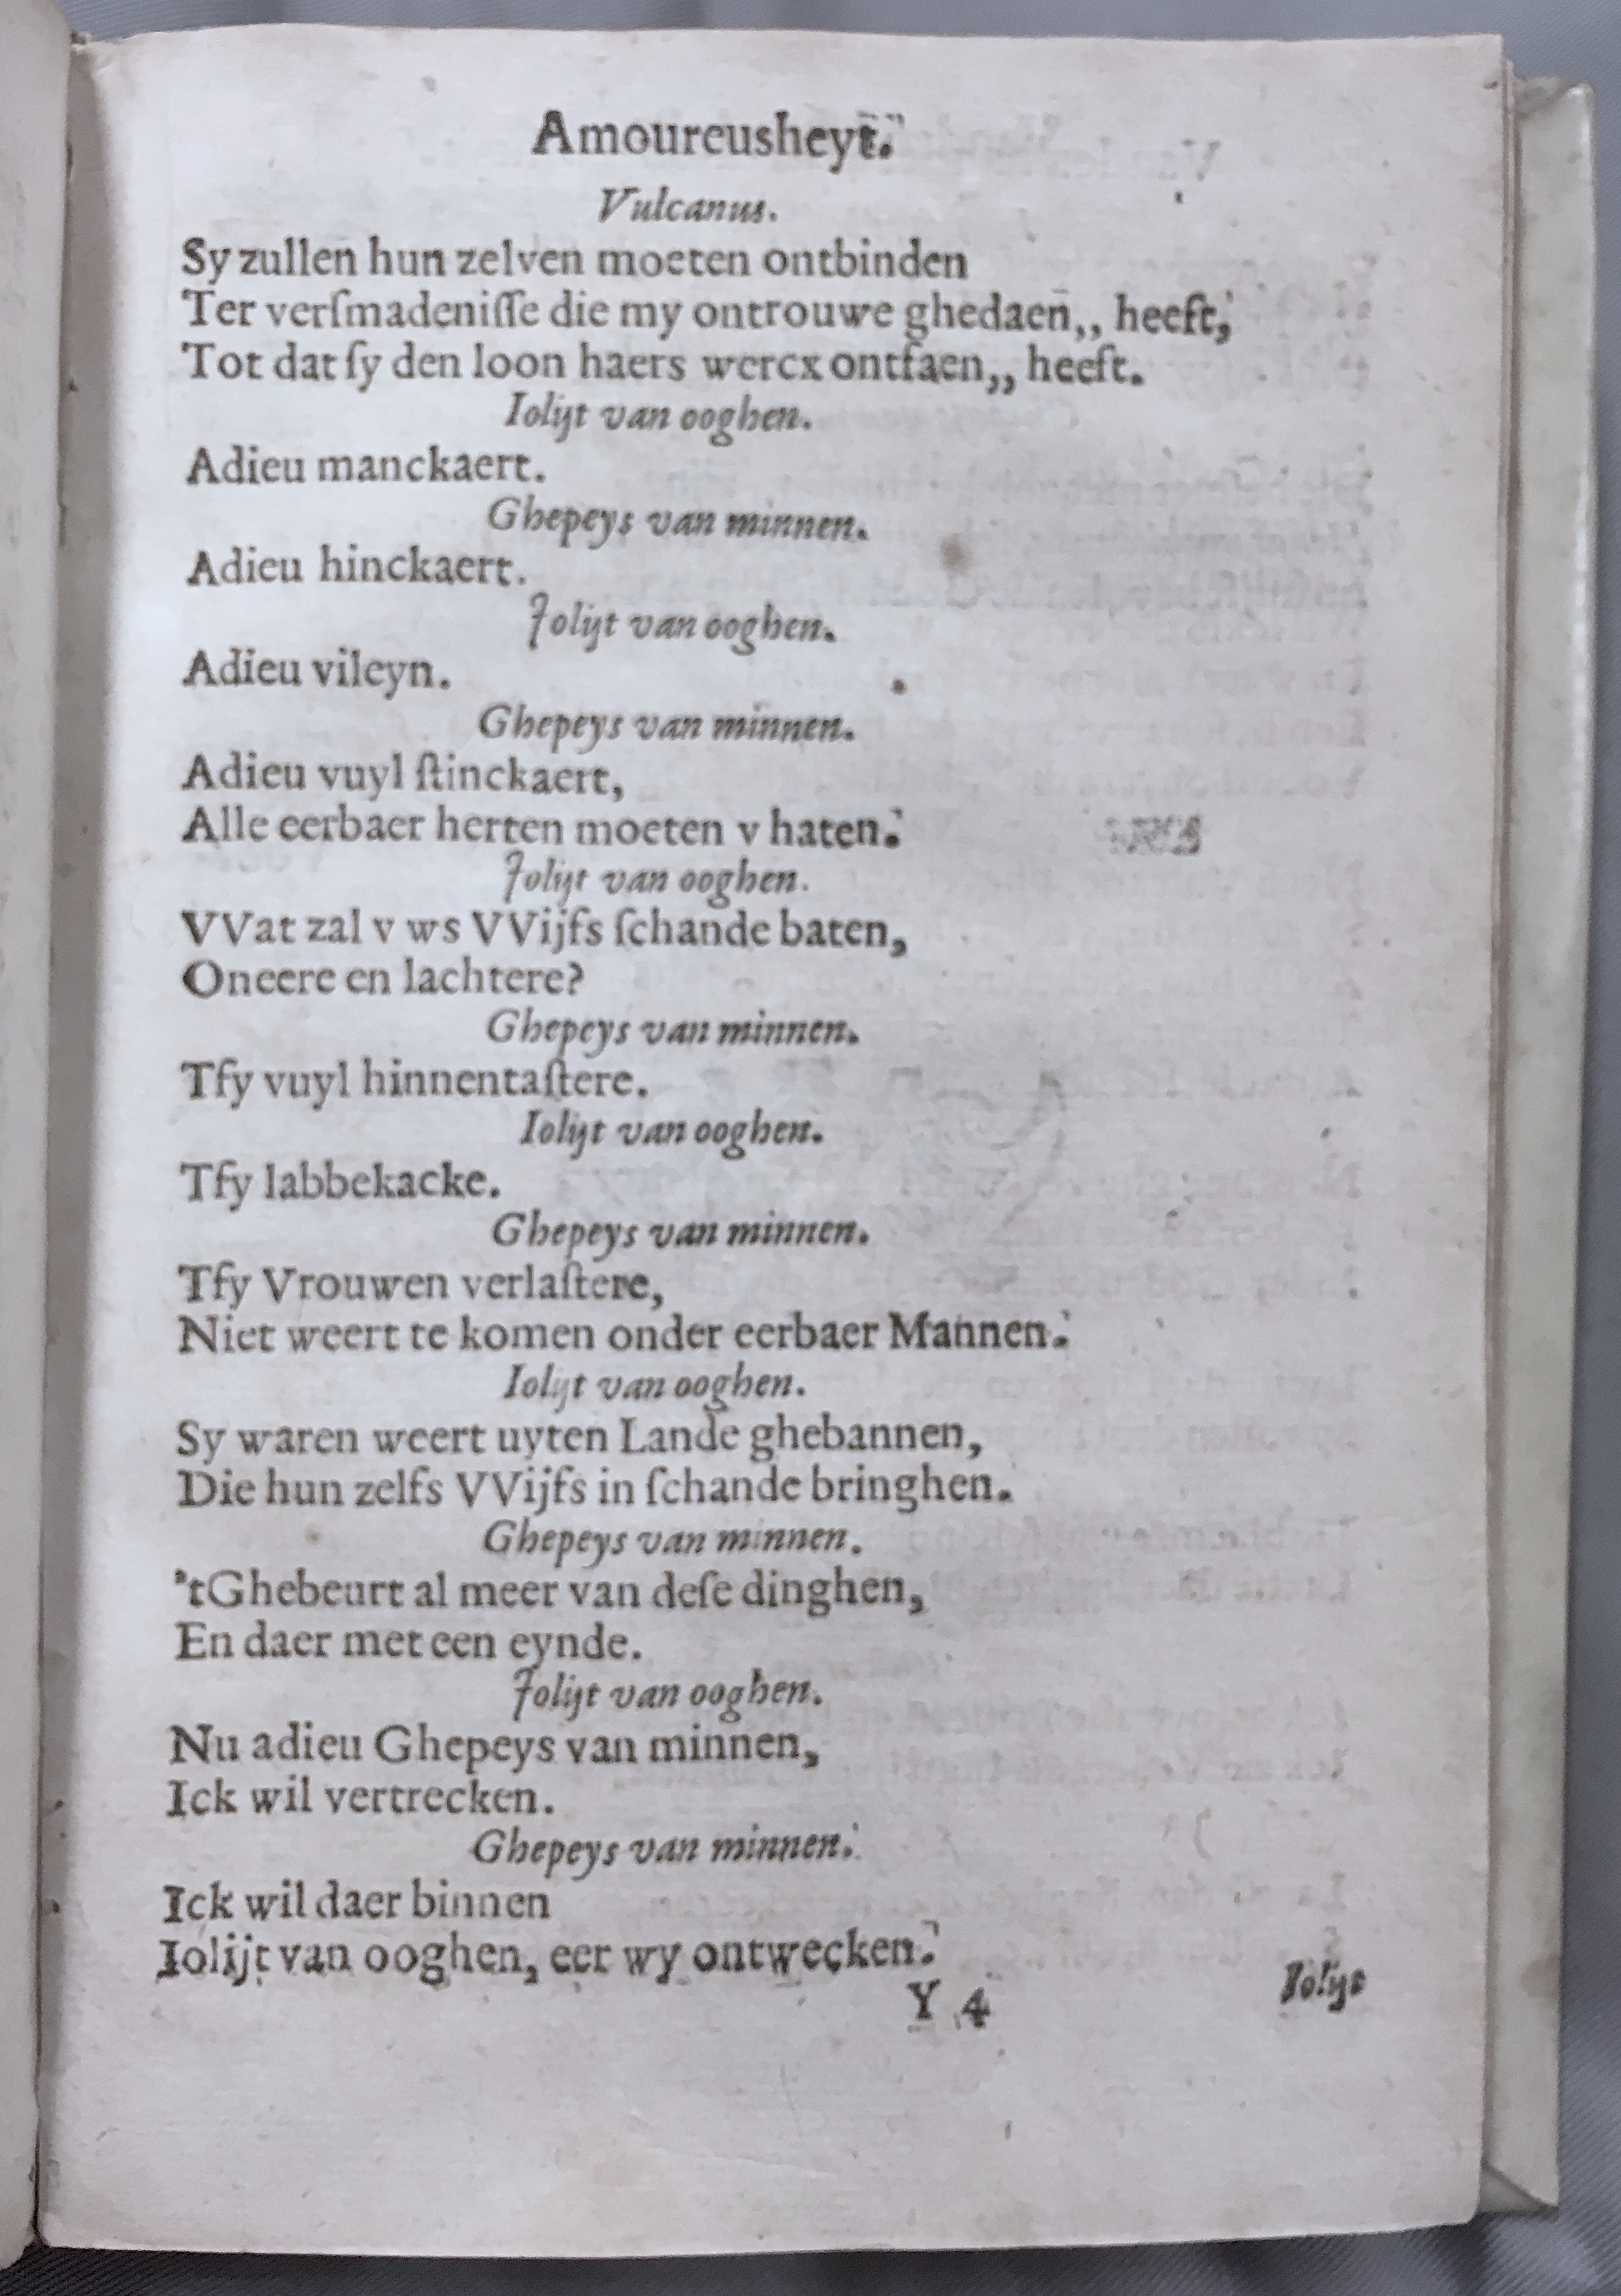 Amoureusheyt.
Vulcanus.
Sy zullen hun zelven moeten ontbinden
Ter verſmadeniſſe die my ontrouwe ghedaen,, heeft,
Tot dat ſy den loon haers wercx ontfaen,, heeft.
Iolijt van ooghen.
Adieu manckaert.
Ghepeys van minnen.
Adieu hinckaert.
Jolijt van ooghen.
Adieu vileyn.
Ghepeys van minnen.
Adieu vuyl ſtinckaert,
Alle eerbaer herten moeten v haten.
Jolijt van ooghen.
VVat zal v ws VVijfs ſchande baten,
Oneere en lachtere?
Ghepeys van minnen.
Tfy vuyl hinnentaſtere.
Iolijt van ooghen.
Tfy labbekacke.
Ghepeys van minnen.
Tfy Vrouwen verlaſtere,
Niet weert te komen onder eerbaer Mannen.
Iolijt van ooghen.
Sy waren weert uyten Lande ghebannen,
Die hun zelfs VVijfs in ſchande bringhen.
Ghepeys van minnen.
'tGhebeurt al meer van deſe dinghen,
En daer met een eynde.
Jolijt van ooghen.
Nu adieu Ghepeys van minnen,
Ick wil vertrecken.
Ghepeys van minnen.
Ick wil daer binnen
Iolijt van ooghen, eer wy ontwecken.
Y 4 Iolijt